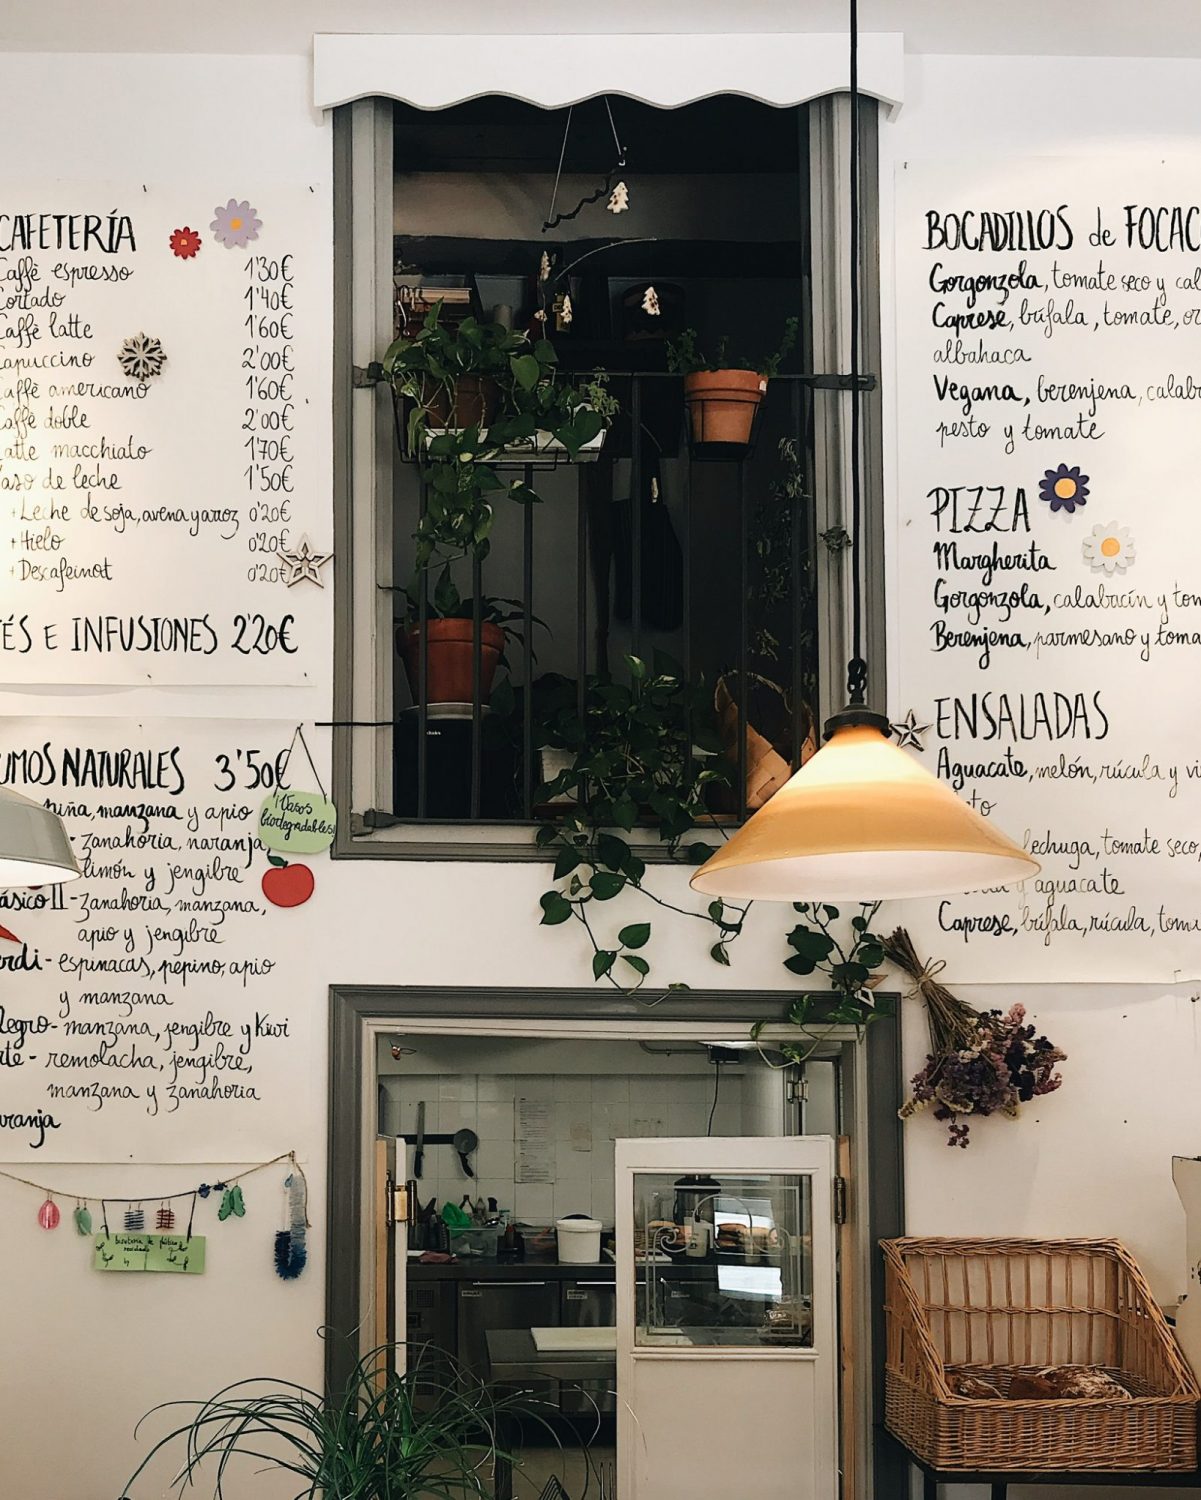 CAFETERÍA
Caffè espresso 1'30€
Cortado 1'40€
Caffè latte 1'60€
Capuccino 2'00€
Caffè americano 1'60€
Caffè doble 2'00€
Latte macchiato 1'70€
Vaso de leche 1'50€
+Leche de soja, avena y arroz 0'20€
+Hielo 0'20€
+Descafeinat 0'20€
TÉS E INFUSIONES 2'20€
UMOS NATURALES 3'50€
piña, manzana y apio
- zanahoria, naranja,
limón y jengibre
ásico II - zanahoria, manzana,
apio y jengibre
erdi - espinacas, pepino, apio
y manzana
legro - manzana, jengibre y Kiwi
rte - remolacha, jengibre,
manzana y zanahoria
aranja
¡Vasos
biodegradables!
BOCADILLOS de FOCAC
Gorgonzola, tomate seco y cal
Caprese, búfala, tomate, or
albahaca
Vegana, berenjena, calab
pesto y tomate
PIZZA
Margherita
Gorgonzola, calabacín y tom
Berenjena, parmesano y toma
ENSALADAS
Aguacate, melón, rúcula y vi
to
lechuga, tomate seco,
y aguacate
Caprese, búfala, rúcula, toma